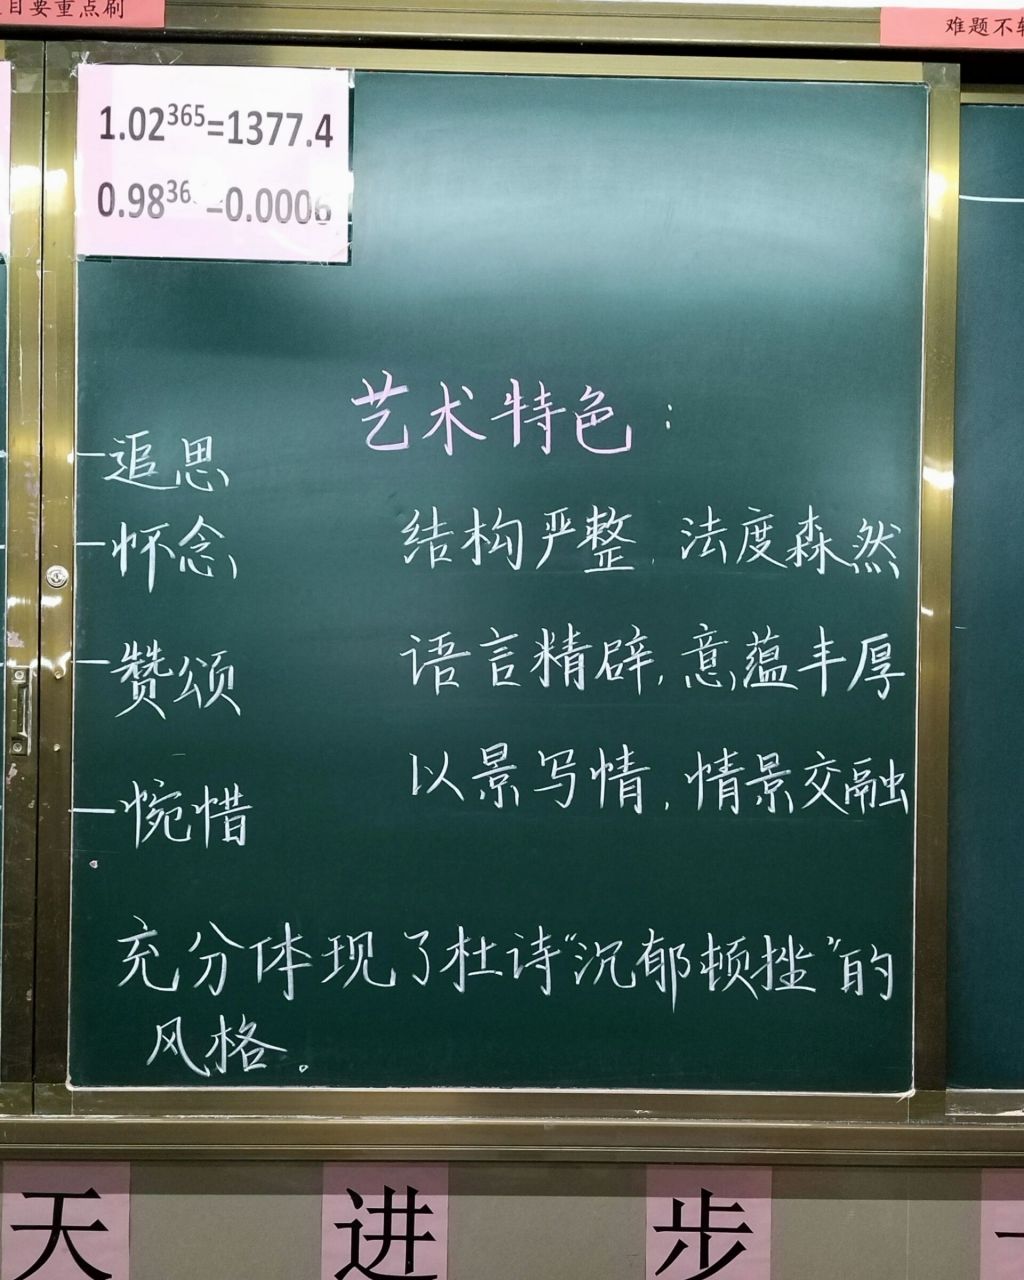 目要重点刷
难题不
1.02³⁶⁵=1377.4
0.98³⁶ =0.0006
艺术特色：
追思
怀念
赞颂
惋惜
结构严整，法度森然
语言精辟，意蕴丰厚
以景写情，情景交融
充分体现了杜诗“沉郁顿挫”的
风格。
天进步